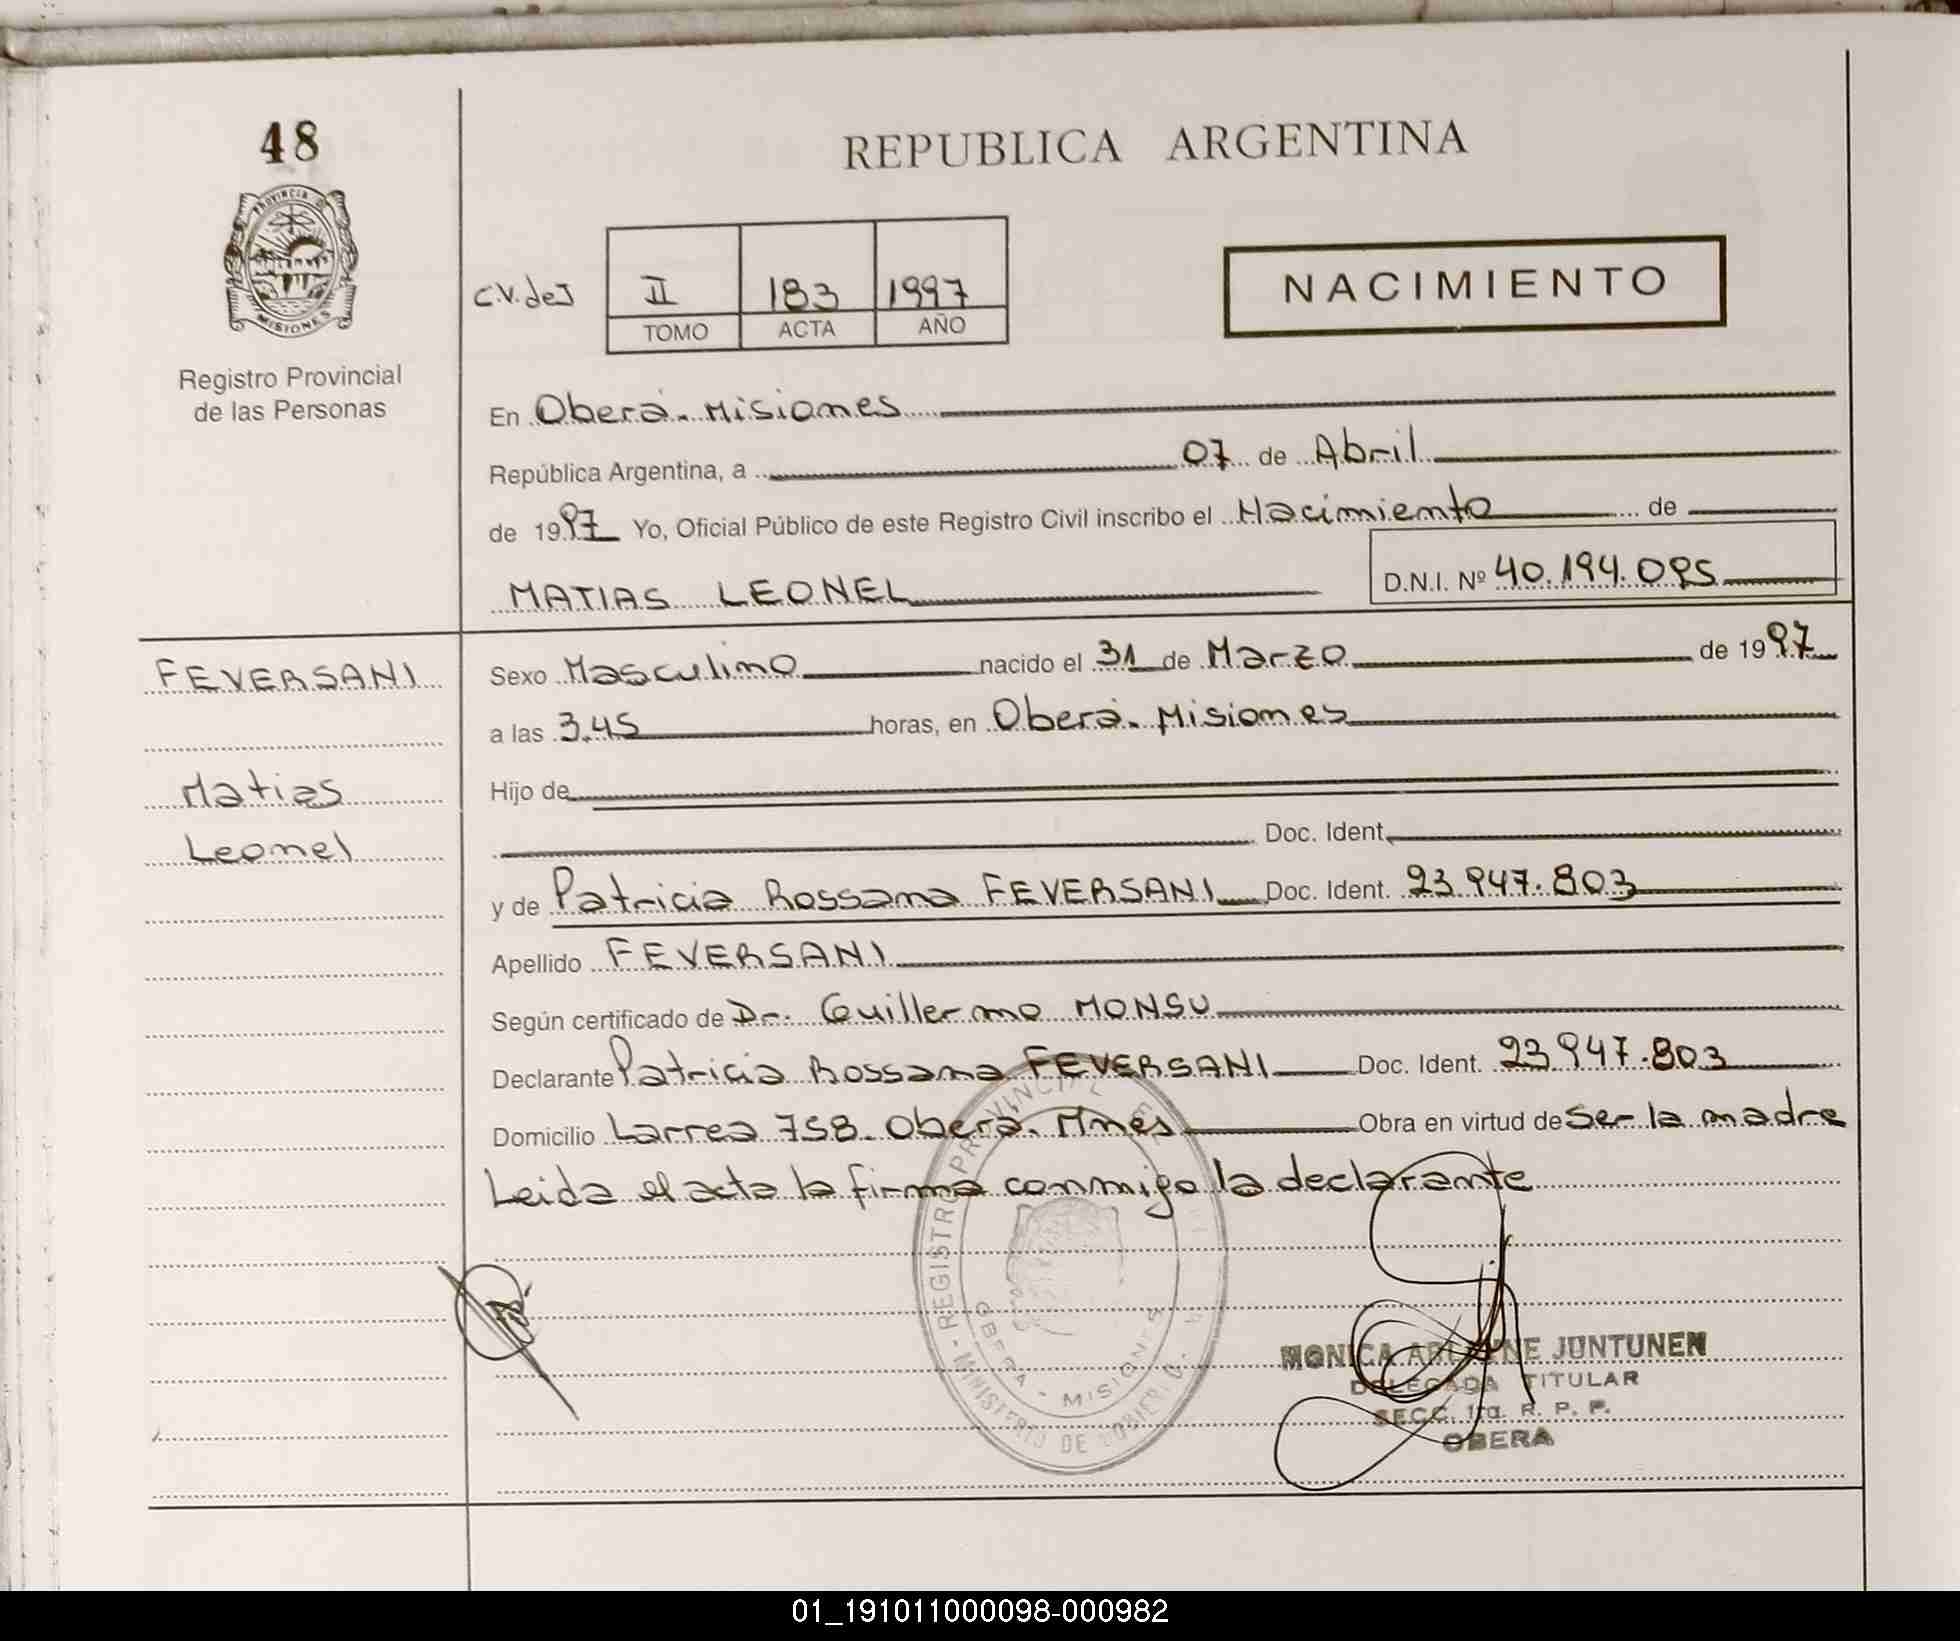 48
REPUBLICA ARGENTINA
PROVINCIA DE
MISIONES
Registro Provincial
de las Personas
C.V.deJ
II 183 1997
TOMO ACTA AÑO
NACIMIENTO
En Oberá. Misiones
República Argentina, a 07 de Abril
de 1997 Yo, Oficial Público de este Registro Civil inscribo el Nacimiento de
MATIAS LEONEL D.N.I. Nº 40.194.095
FEVERSANI
Matias
Leonel
Sexo Masculino nacido el 31 de Marzo de 1997
a las 3.45 horas, en Oberá. Misiones
Hijo de
Doc. Ident.
y de Patricia Rossana FEVERSANI Doc. Ident. 23.947.803
Apellido FEVERSANI
Según certificado de Dr. Guillermo MONSU
Declarante Patricia Rossana FEVERSANI Doc. Ident. 23.947.803
Domicilio Larrea 758. Oberá. Mnes Obra en virtud de Ser la madre
Leida el acta la firma conmigo la declarante
REGISTRO PROVINCIAL
MINISTERIO DE GOBIERNO
OBERA - MISIONES
MONICA JUNTUNEN
DELEGADA TITULAR
SECC. 1ra. R. P. P.
OBERA
01_191011000098-000982